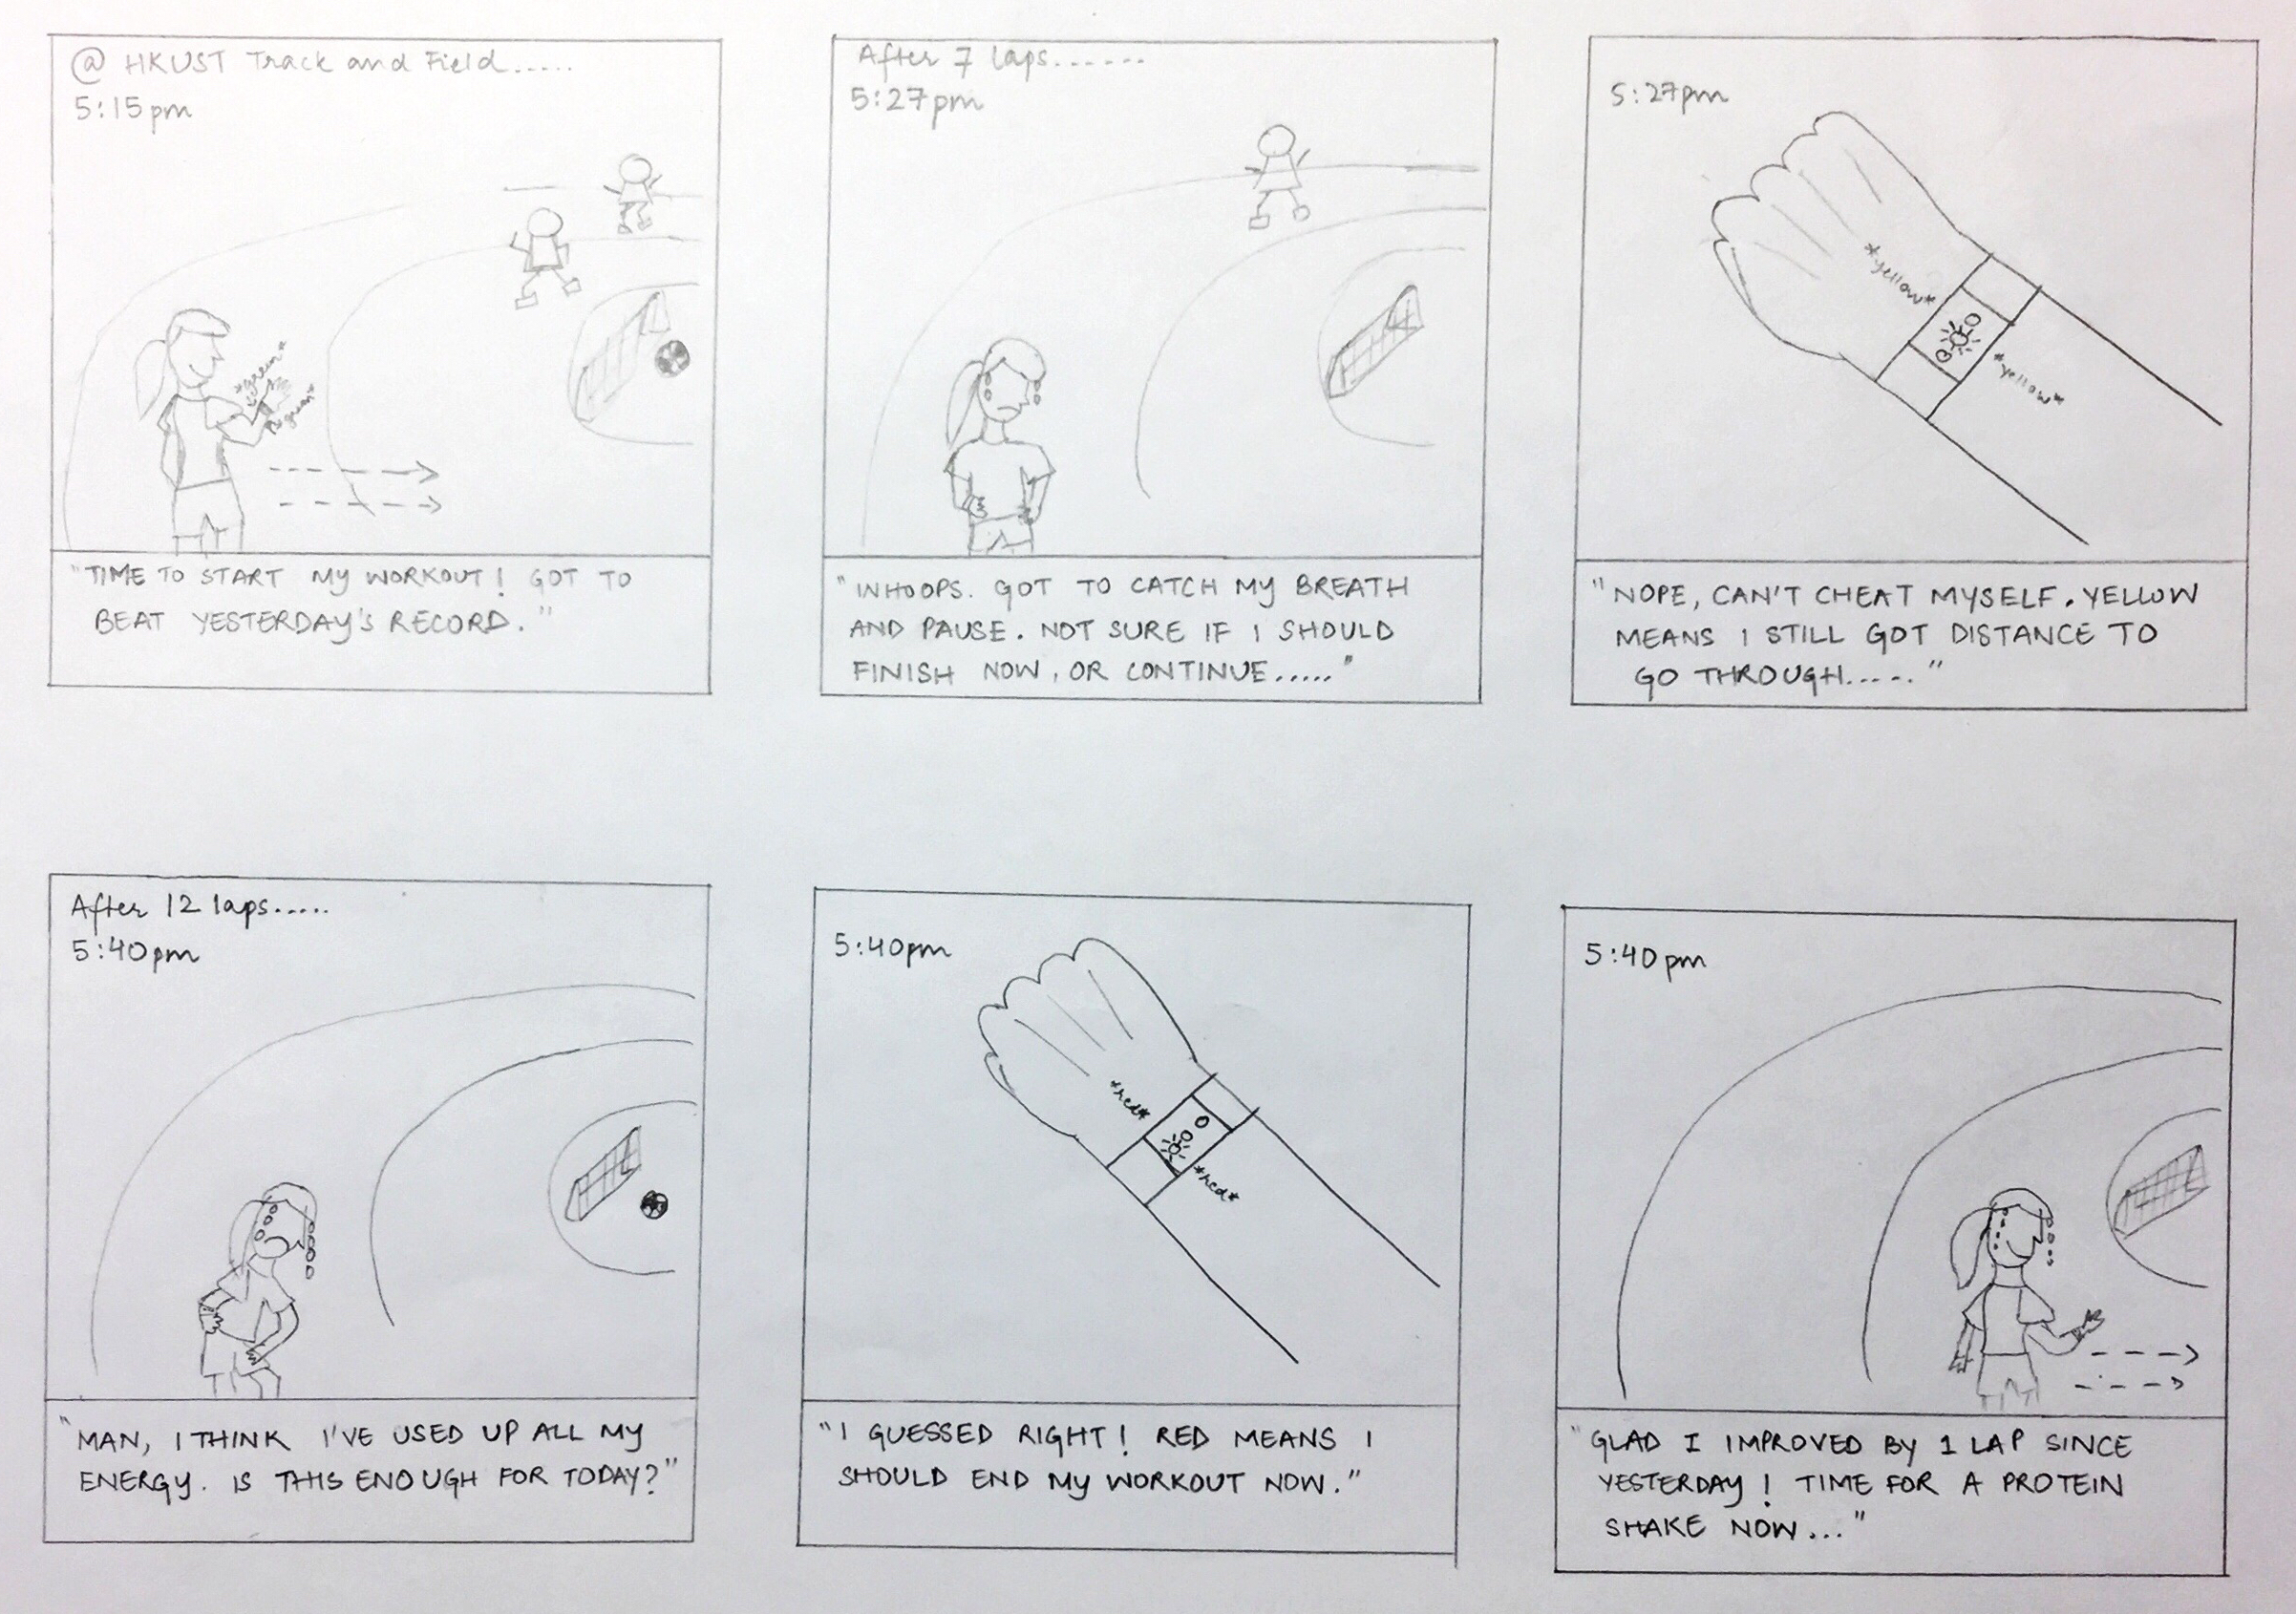 @ HKUST Track and Field.....
5:15pm
*green*
*green*
"TIME TO START MY WORKOUT! GOT TO
BEAT YESTERDAY'S RECORD."
After 7 laps.......
5:27pm
"WHOOPS. GOT TO CATCH MY BREATH
AND PAUSE. NOT SURE IF I SHOULD
FINISH NOW, OR CONTINUE....."
5:27pm
*yellow*
*yellow*
"NOPE, CAN'T CHEAT MYSELF. YELLOW
MEANS I STILL GOT DISTANCE TO
GO THROUGH....."
After 12 laps.....
5:40pm
"MAN, I THINK I'VE USED UP ALL MY
ENERGY. IS THIS ENOUGH FOR TODAY?"
5:40pm
*red*
*red*
"I GUESSED RIGHT! RED MEANS I
SHOULD END MY WORKOUT NOW."
5:40pm
"GLAD I IMPROVED BY 1 LAP SINCE
YESTERDAY! TIME FOR A PROTEIN
SHAKE NOW..."